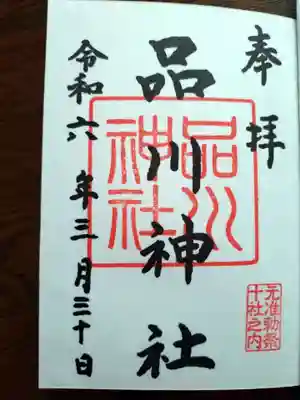 奉拝
品川神社
品川神社
元准勅祭
十社之内
令和六年三月三十日